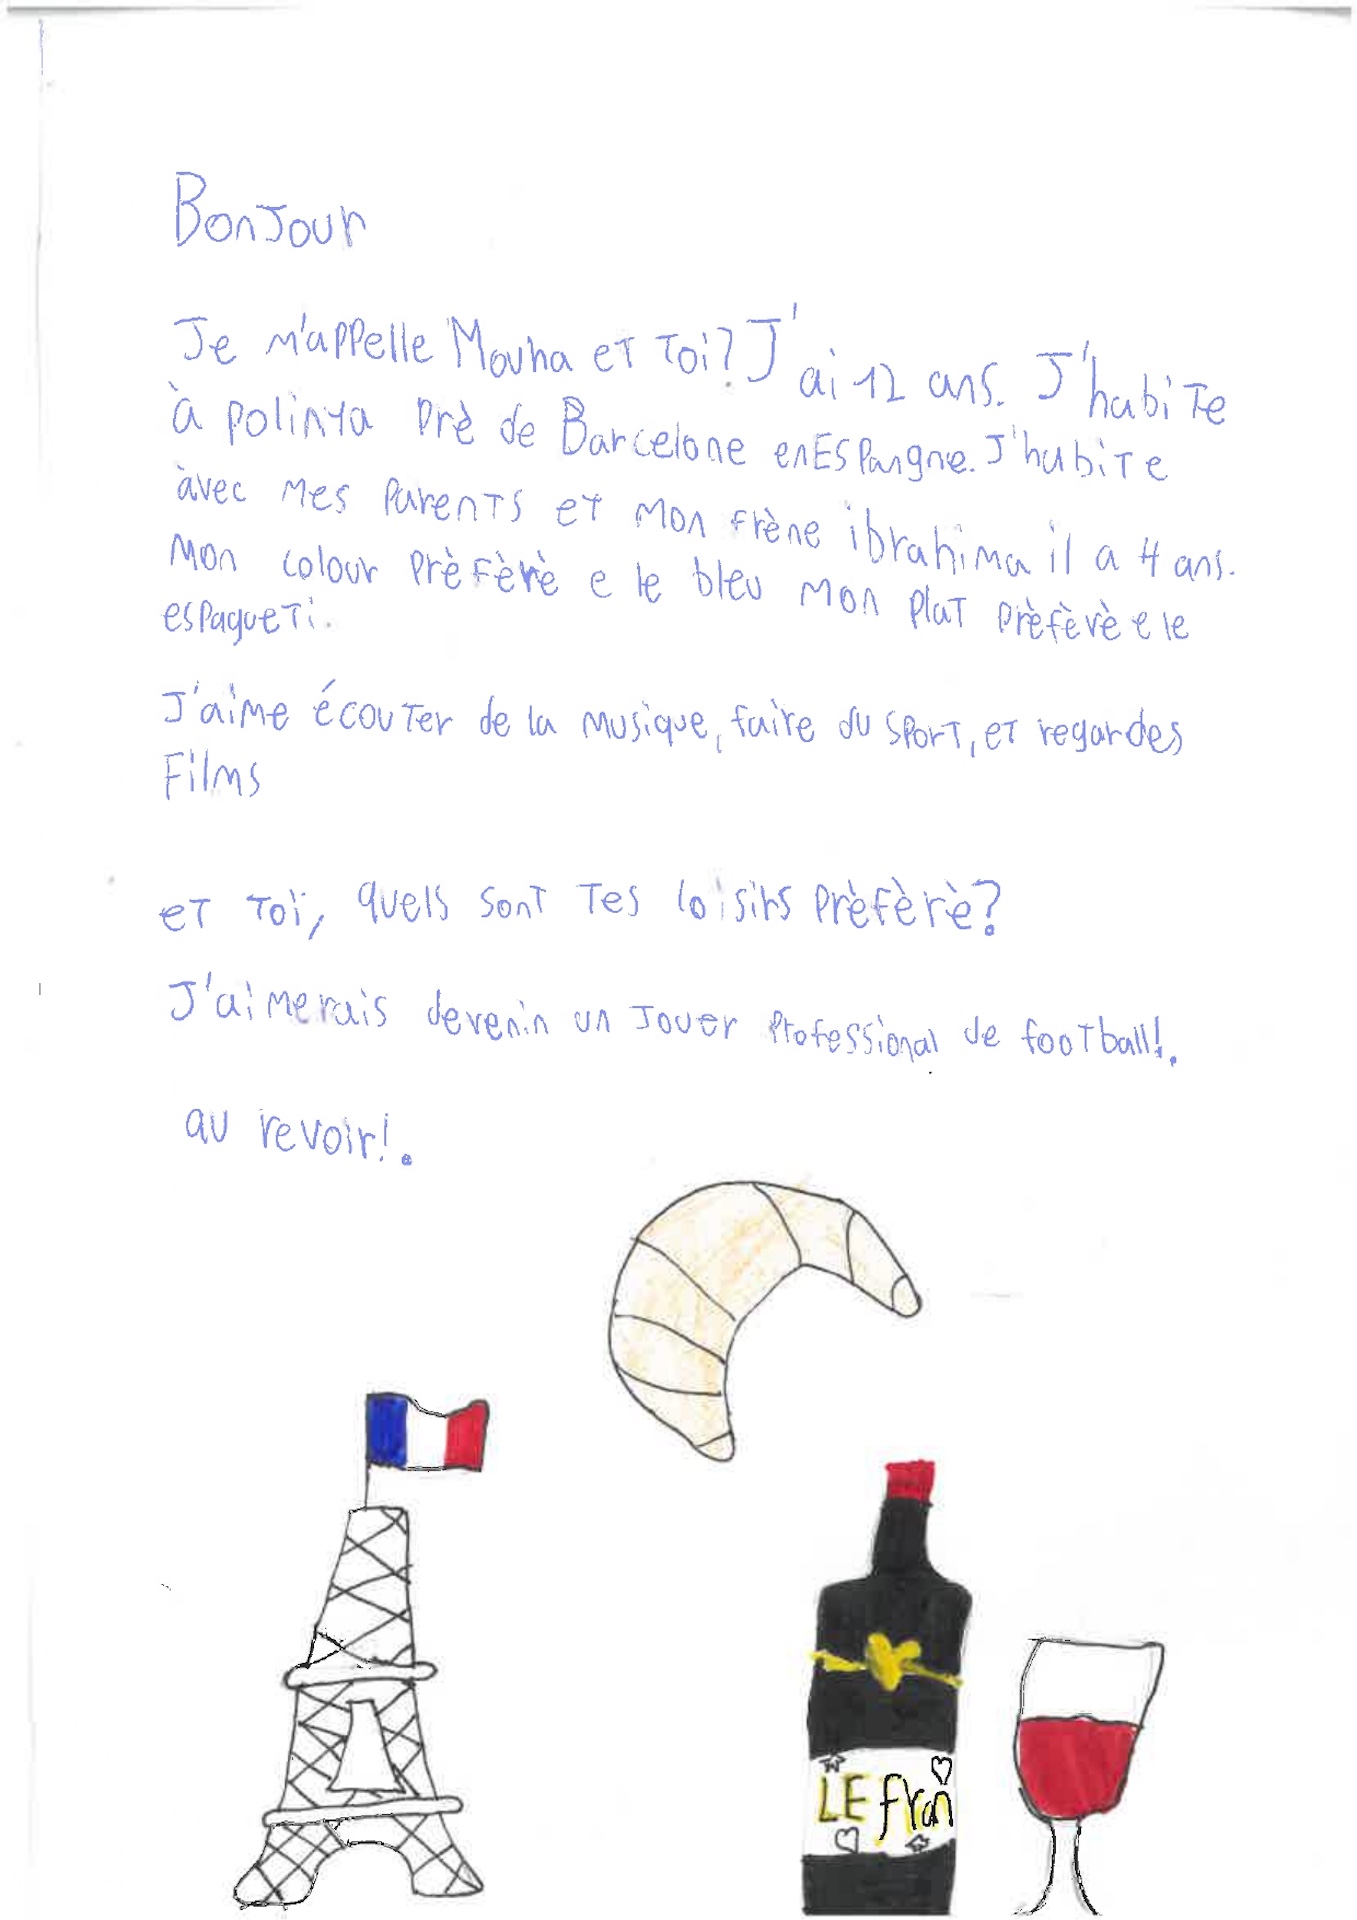 Bonjour
Je m'appelle Mouha et toi? J'ai 12 ans. J'habite
à polinya prè de Barcelone en Espangne. J'habite
àvec mes parents et mon frène ibrahima il a 4 ans.
Mon colour prèfèrè e le bleu mon plat prèfèrè e le
espagueti.
J'aime écouter de la musique, faire du sport, et regardes
Films
et toi, quels sont tes loisirs prèfèrè?
J'aimerais devenin un jouer professional de football!.
au revoir!.
LE fran